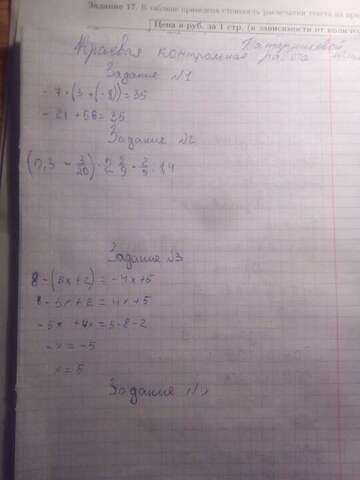 Задание 17. В таблице приведена стоимость распечатки текста на
Цена в руб. за 1 стр. (в зависимости от
Краевая контрольная работа
Задание №1
- 7 · (3 + (-8)) = 35
- 21 + 56 = 35
Задание №2
Задание №3
8 - (5x + 2) = -4x + 5
8 - 5x + 2 = 4x + 5
- 5x + 4x = 5 - 8 - 2
- x = - 5
x = 5
Задание